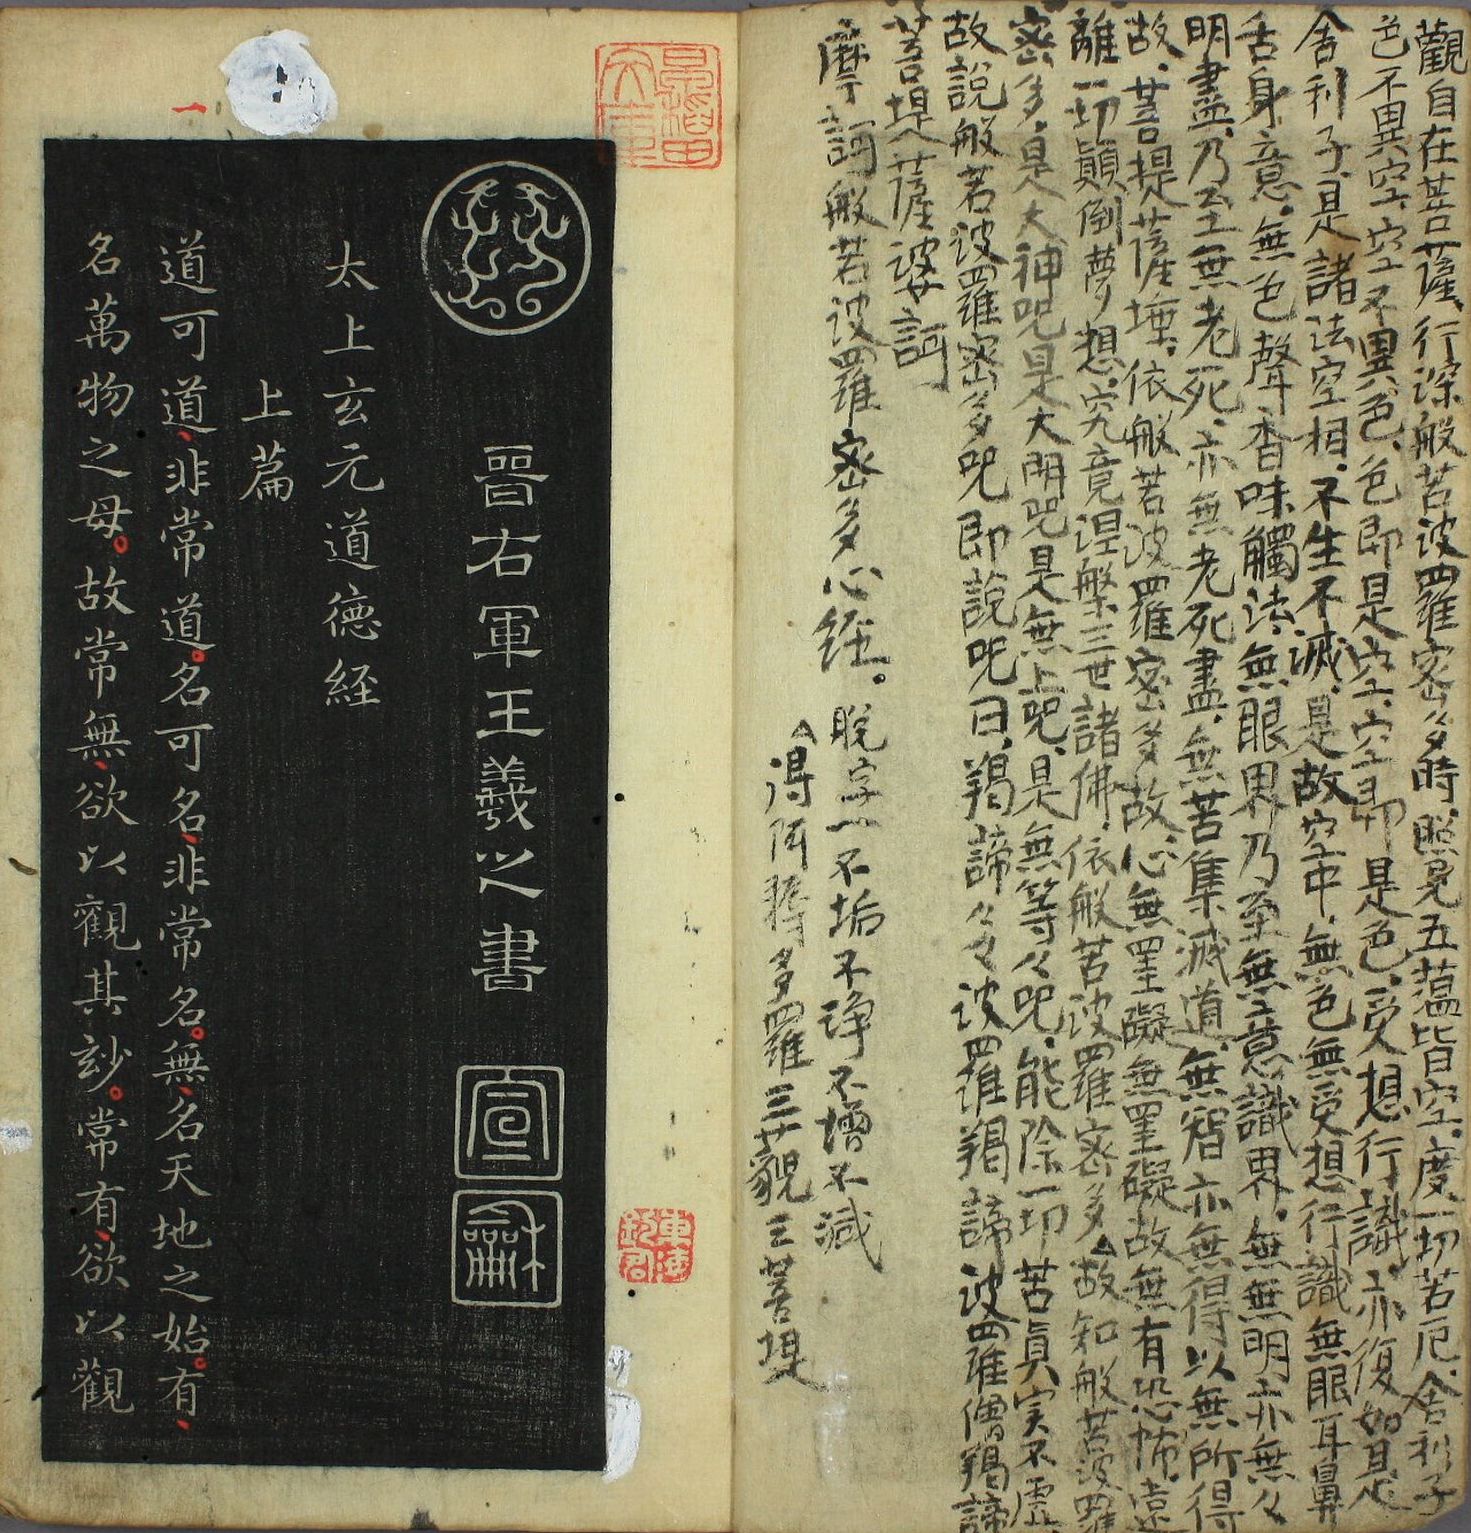 觀自在菩薩、行深般若波羅密多時、照見五蘊皆空、度一切苦厄、舍利子
色不異空、空不異色、色即是空、空即是色、受想行識、亦復如是
舍利子、是諸法空相、不生不滅、是故空中、無色無受想行識無眼耳鼻
舌身意、無色聲香味觸法、無眼界乃至無意識界、無無明亦無々
明盡、乃至無老死、亦無老死盡、無苦集滅道、無智亦無得以無所得
故、菩提薩埵、依般若波羅密多故、心無罣礙無罣礙故無有恐怖、遠
離一切顛倒夢想、究竟涅槃三世諸佛、依般若波羅密多、△故知般若波羅
密多、是大神呪是大明呪是無上呪、是無等々呪、能除一切苦真実不虛
故說般若波羅密多呪即說呪曰、羯諦々々波羅羯諦波羅僧羯諦
菩提薩婆訶
摩訶般若波羅密多心経。
脫字一不垢不淨不增不減
△得阿耨多羅三藐三菩提
晉右軍王羲之書
宣
龢
太上玄元道德経
上篇
道可道、非常道。名可名、非常名。無、名天地之始。有、
名萬物之母。故常無、欲以觀其玅。常有、欲以觀
一